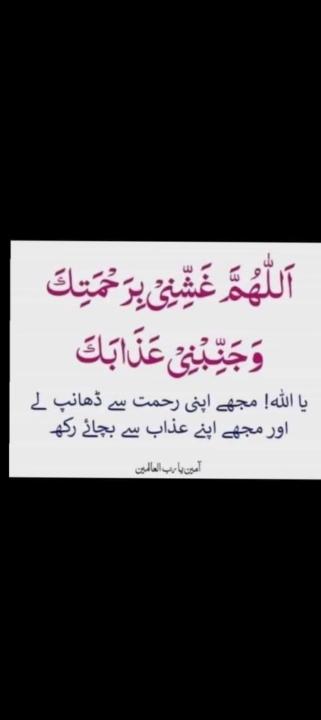 اَللّٰهُمَّ غَشِّنِیْ بِرَحْمَتِكَ
وَجَنِّبْنِیْ عَذَابَكَ
یا اللہ! مجھے اپنی رحمت سے ڈھانپ لے
اور مجھے اپنے عذاب سے بچائے رکھ
آمین یا رب العالمین